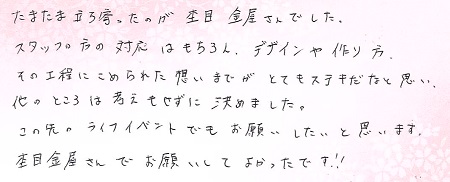 たまたま立ち寄ったのが 杢目金屋さんでした。
スタッフの方の対応はもちろん、デザインや作り方、
その工程にこめられた想いまでがとてもステキだなと思い、
他のところは考えもせずに決めました。
この先のライフイベントでもお願いしたいと思います。
杢目金屋さんでお願いしてよかったです!!